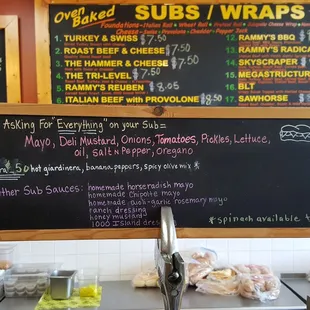 Oven Baked SUBS / WRAPS
Foundations = Italian Roll * Wheat Roll * Wrap
Cheese = Swiss * Provolone * Cheddar * Pepper Jack
1. TURKEY & SWISS $7.50
2. ROAST BEEF & CHEESE $7.50
3. THE HAMMER & CHEESE $7.50
4. THE TRI-LEVEL $7.50
5. RAMMY'S REUBEN $8.05
6. ITALIAN BEEF with PROVOLONE $8.50
12. RAMMY'S BBQ
13. RAMMY'S RADICA
14. SKYSCRAPER
15. MEGASTRUCTUR
16. BLT
17. SAWHORSE
$7.50
Asking For "Everything" on your Sub =
Mayo, Deli Mustard, Onions, Tomatoes, Pickles, Lettuce,
oil, salt n Pepper, Oregano
.50 hot giardinera, banana peppers, spicy olive mix *
ther Sub Sauces: homemade horseradish mayo
homemade Chipotle mayo
homemade garlic rosemary mayo
ranch dressing
honey mustard
1000 Island dres
* spinach available